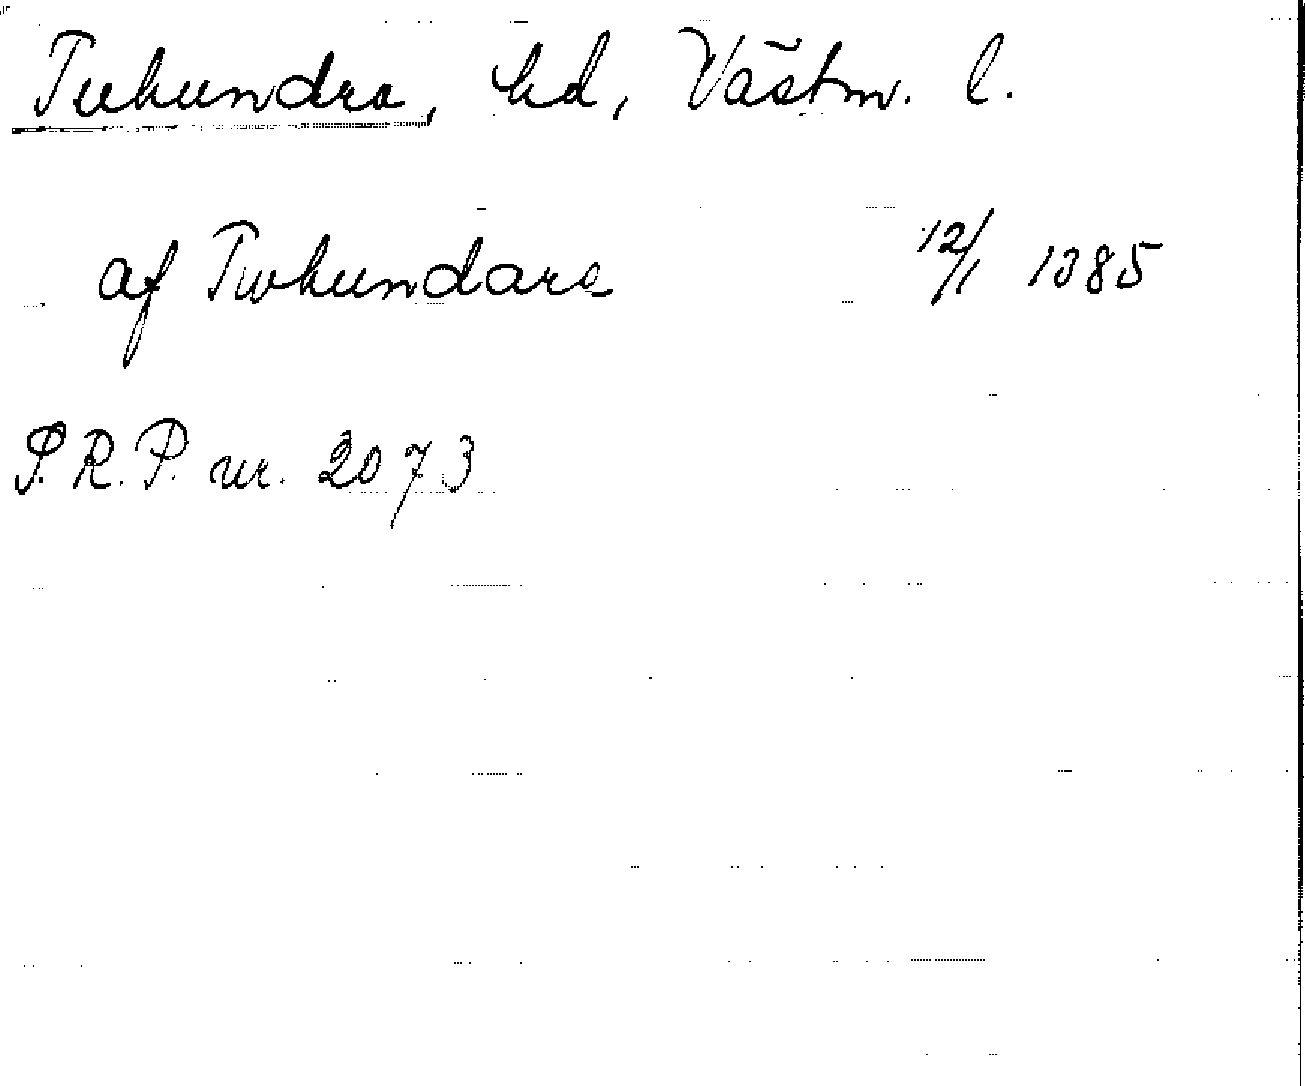 Tuhundra, hd, Västm. l.
af Twhundara 12/1 1385
S.R.P. nr. 2073